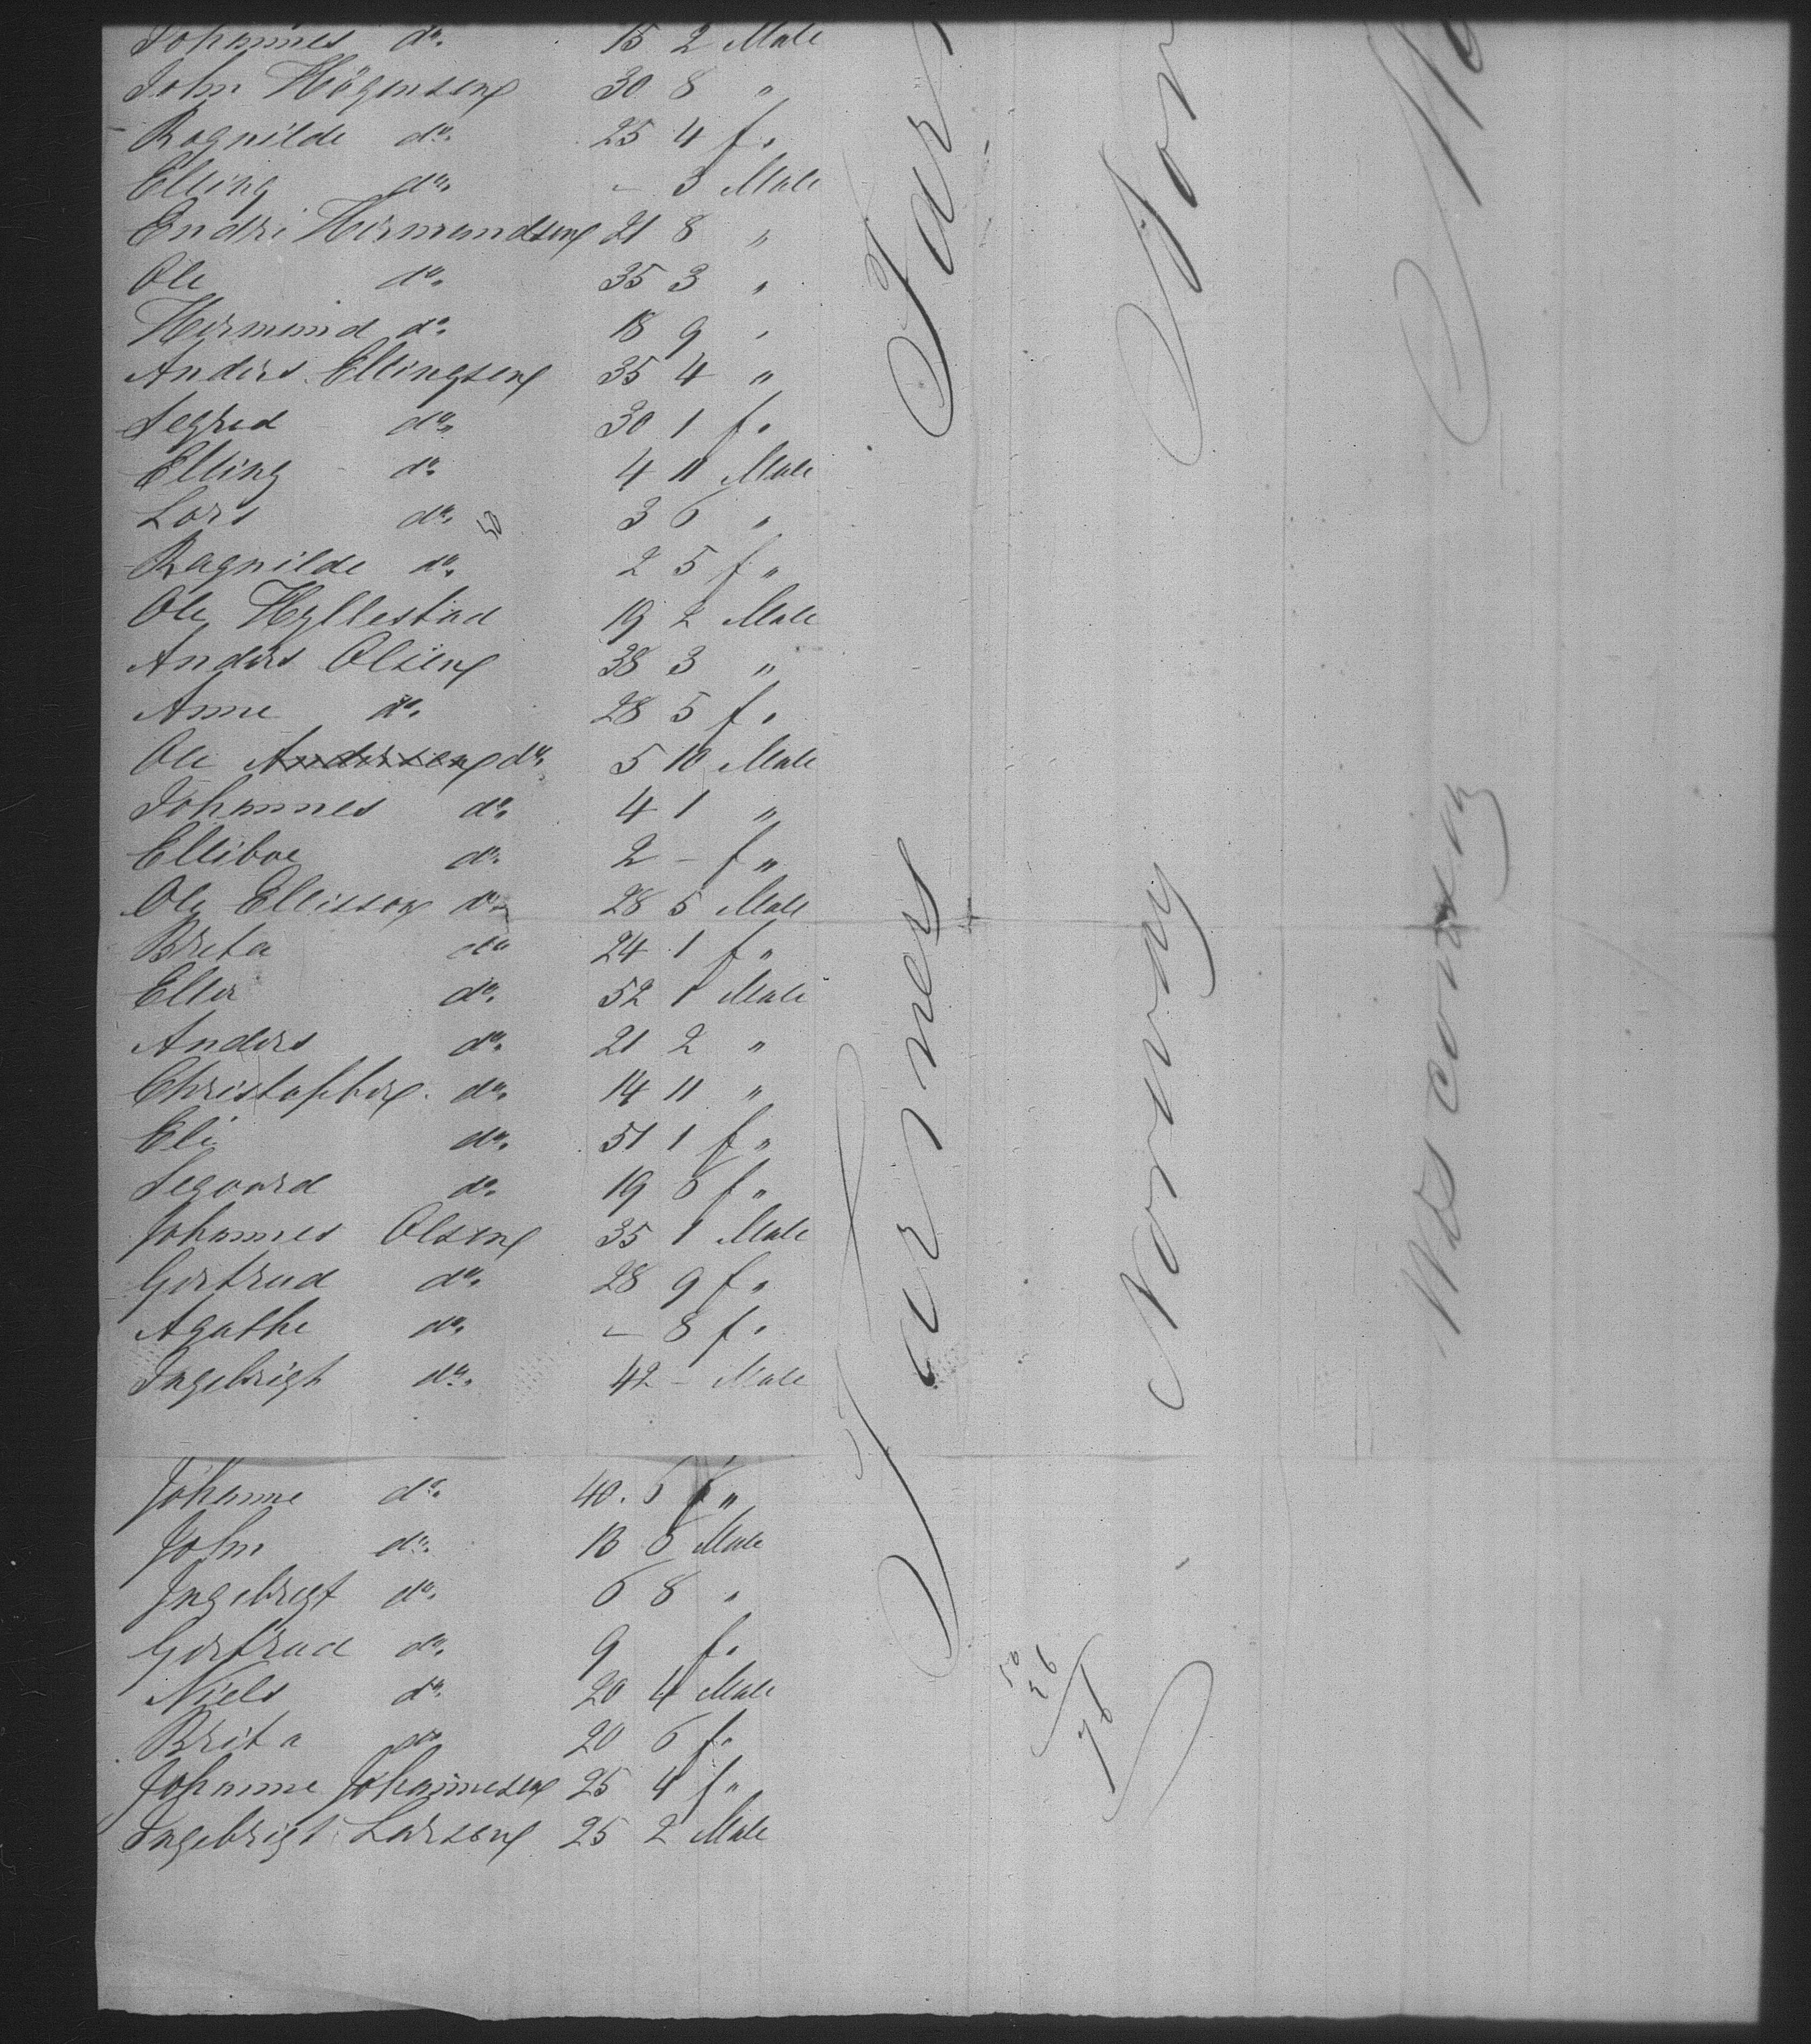 Johannes do. 15 2 Male
John Högensen 30 8 "
Ragnilde do. 25 4 f.
Elling do. – 3 Male
Endri Hermundsen 21 8 "
Ole do. 35 3 "
Hermund do. 18 9 "
Anders Ellingsen 35 4 "
Segred do. 30 1 f.
Elling do. 4 11 Male
Lars do. 50 3 6 "
Ragnilde do. 2 5 f "
Ole Hyllestad 19 2 Male
Anders Olsen 38 3 "
Anne do. 28 5 f.
Ole Andersen do. 5 10 Male
Johannes do. 4 1 "
Elliboe do. 2 – f "
Ole Ellisson do. 28 5 Male
Breta do 24 1 f "
Eller do. 52 1 Male
Anders do. 21 2 "
Christopher do. 14 11 "
Eli do. 51 1 f "
Segvard do. 19 6 f "
Johannes Olsen 35 1 Male
Gertrud do. 28 9 f "
Agathe do. – 8 f.
Ingebrigt do. 42 – Male
Johanne do. 40. 6 f "
John do. 13 6 Male
Ingebrigt do. 6 8 "
Gertrud do. 9 f.
Niels do. 20 4 Male
Brita do 20 6 f.
Johanne Johannesen 25 4 f "
Ingebrigt Larsen 25 2 Male
Farmer
Norway
Wisconsing
50
26
76